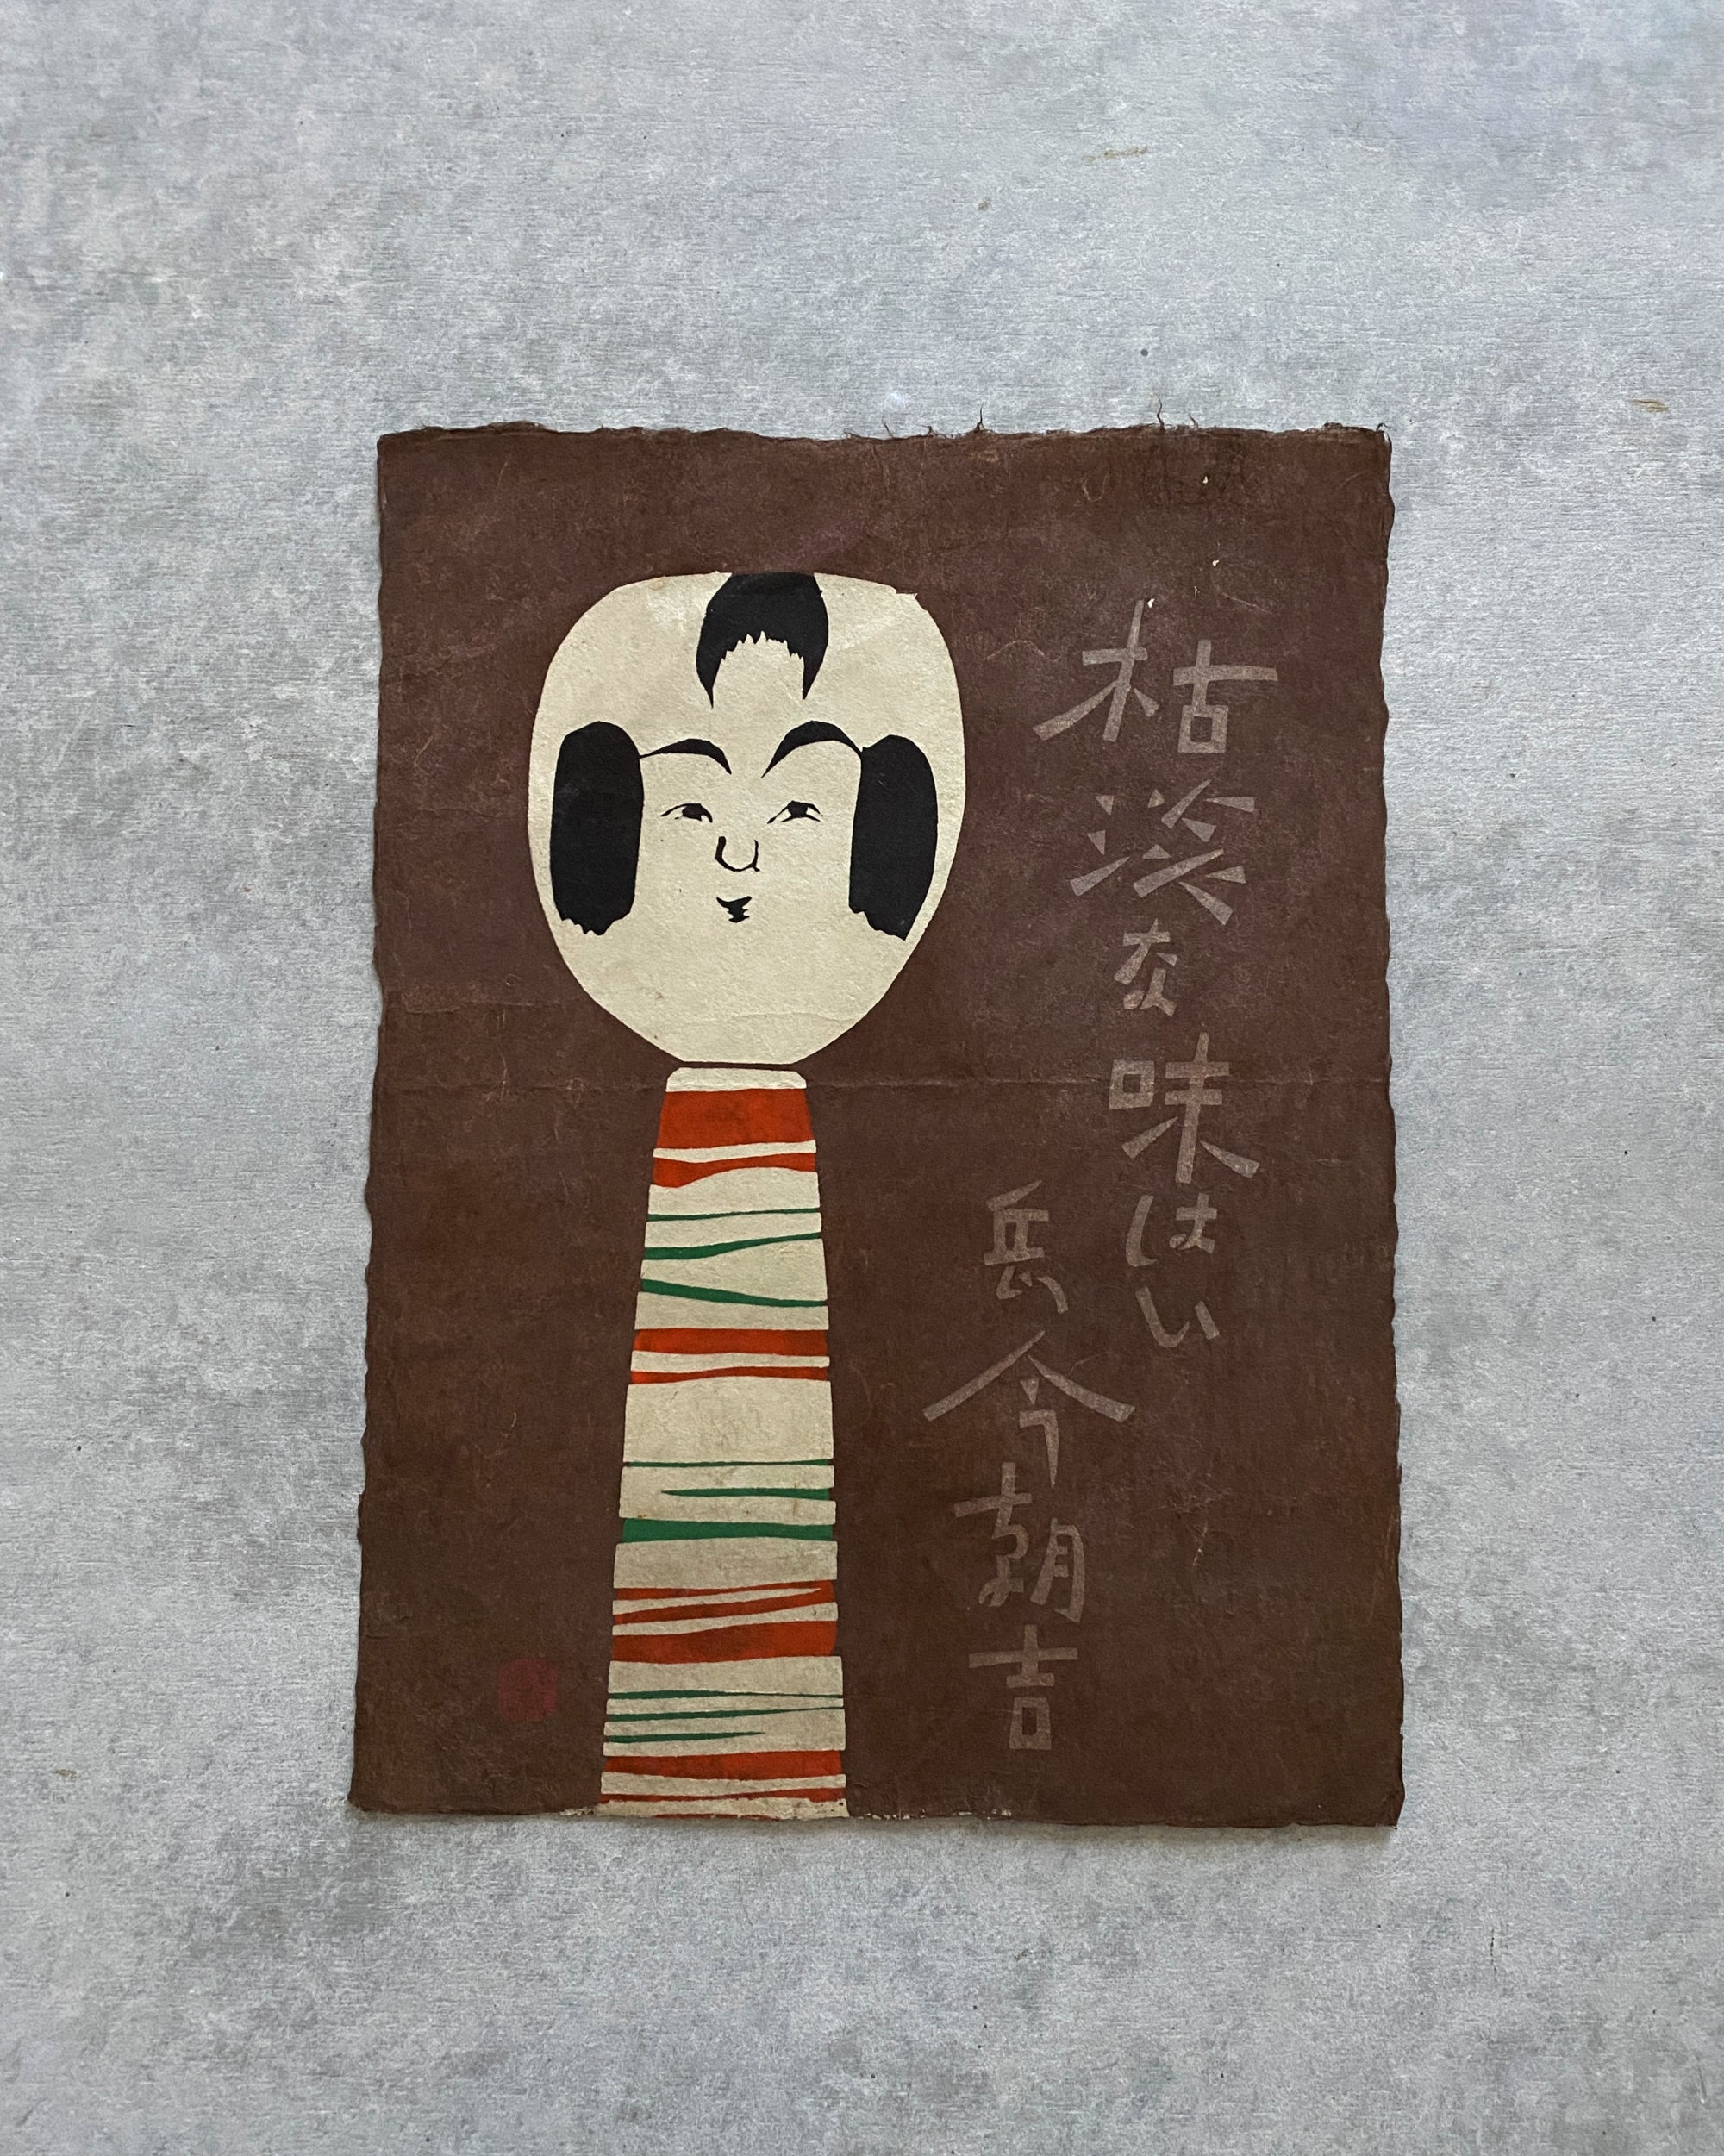 枯淡な味はい
岳今朝吉